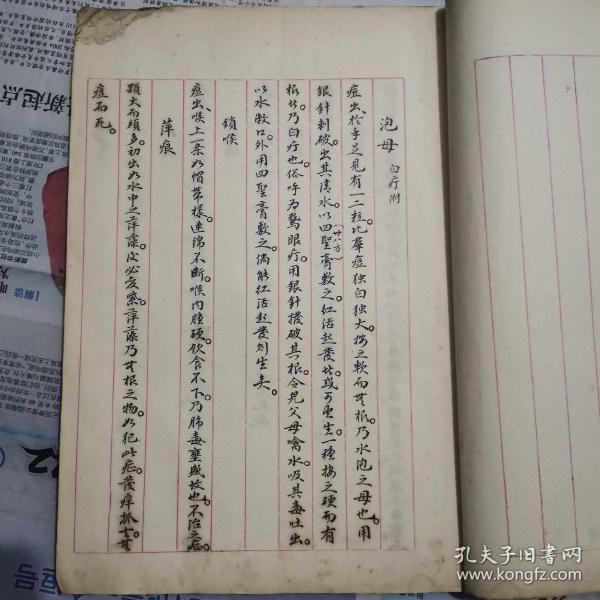 泡母 白疔附
痘出、於手足見有一二粒比羣痘独白独大。按之軟而無根。乃水泡之母也。用
銀針刺破出其清水。以四聖膏敷之。(廿八方)红活起發者。或可更生。一種按之硬而有
根者。乃白疔也。俗呼為鵞眼疔。用銀針撥破其根。令兒父母噙水吸其毒吐出。
以水漱口。外用四聖膏敷之。倘能红活起發。則生矣。
鎖喉
痘出、喉上一条如帽带樣。連绵不断。喉内腫硬。饮食不下。乃肺毒壅盛故也。不治之症。
萍痕
顆大而頭多。初出如水中之萍藻。後必发繁。萍藻乃無根之物。如犯此症。發痒抓去
痘而死。
解读
孔夫子旧書网
www.kongfz.com